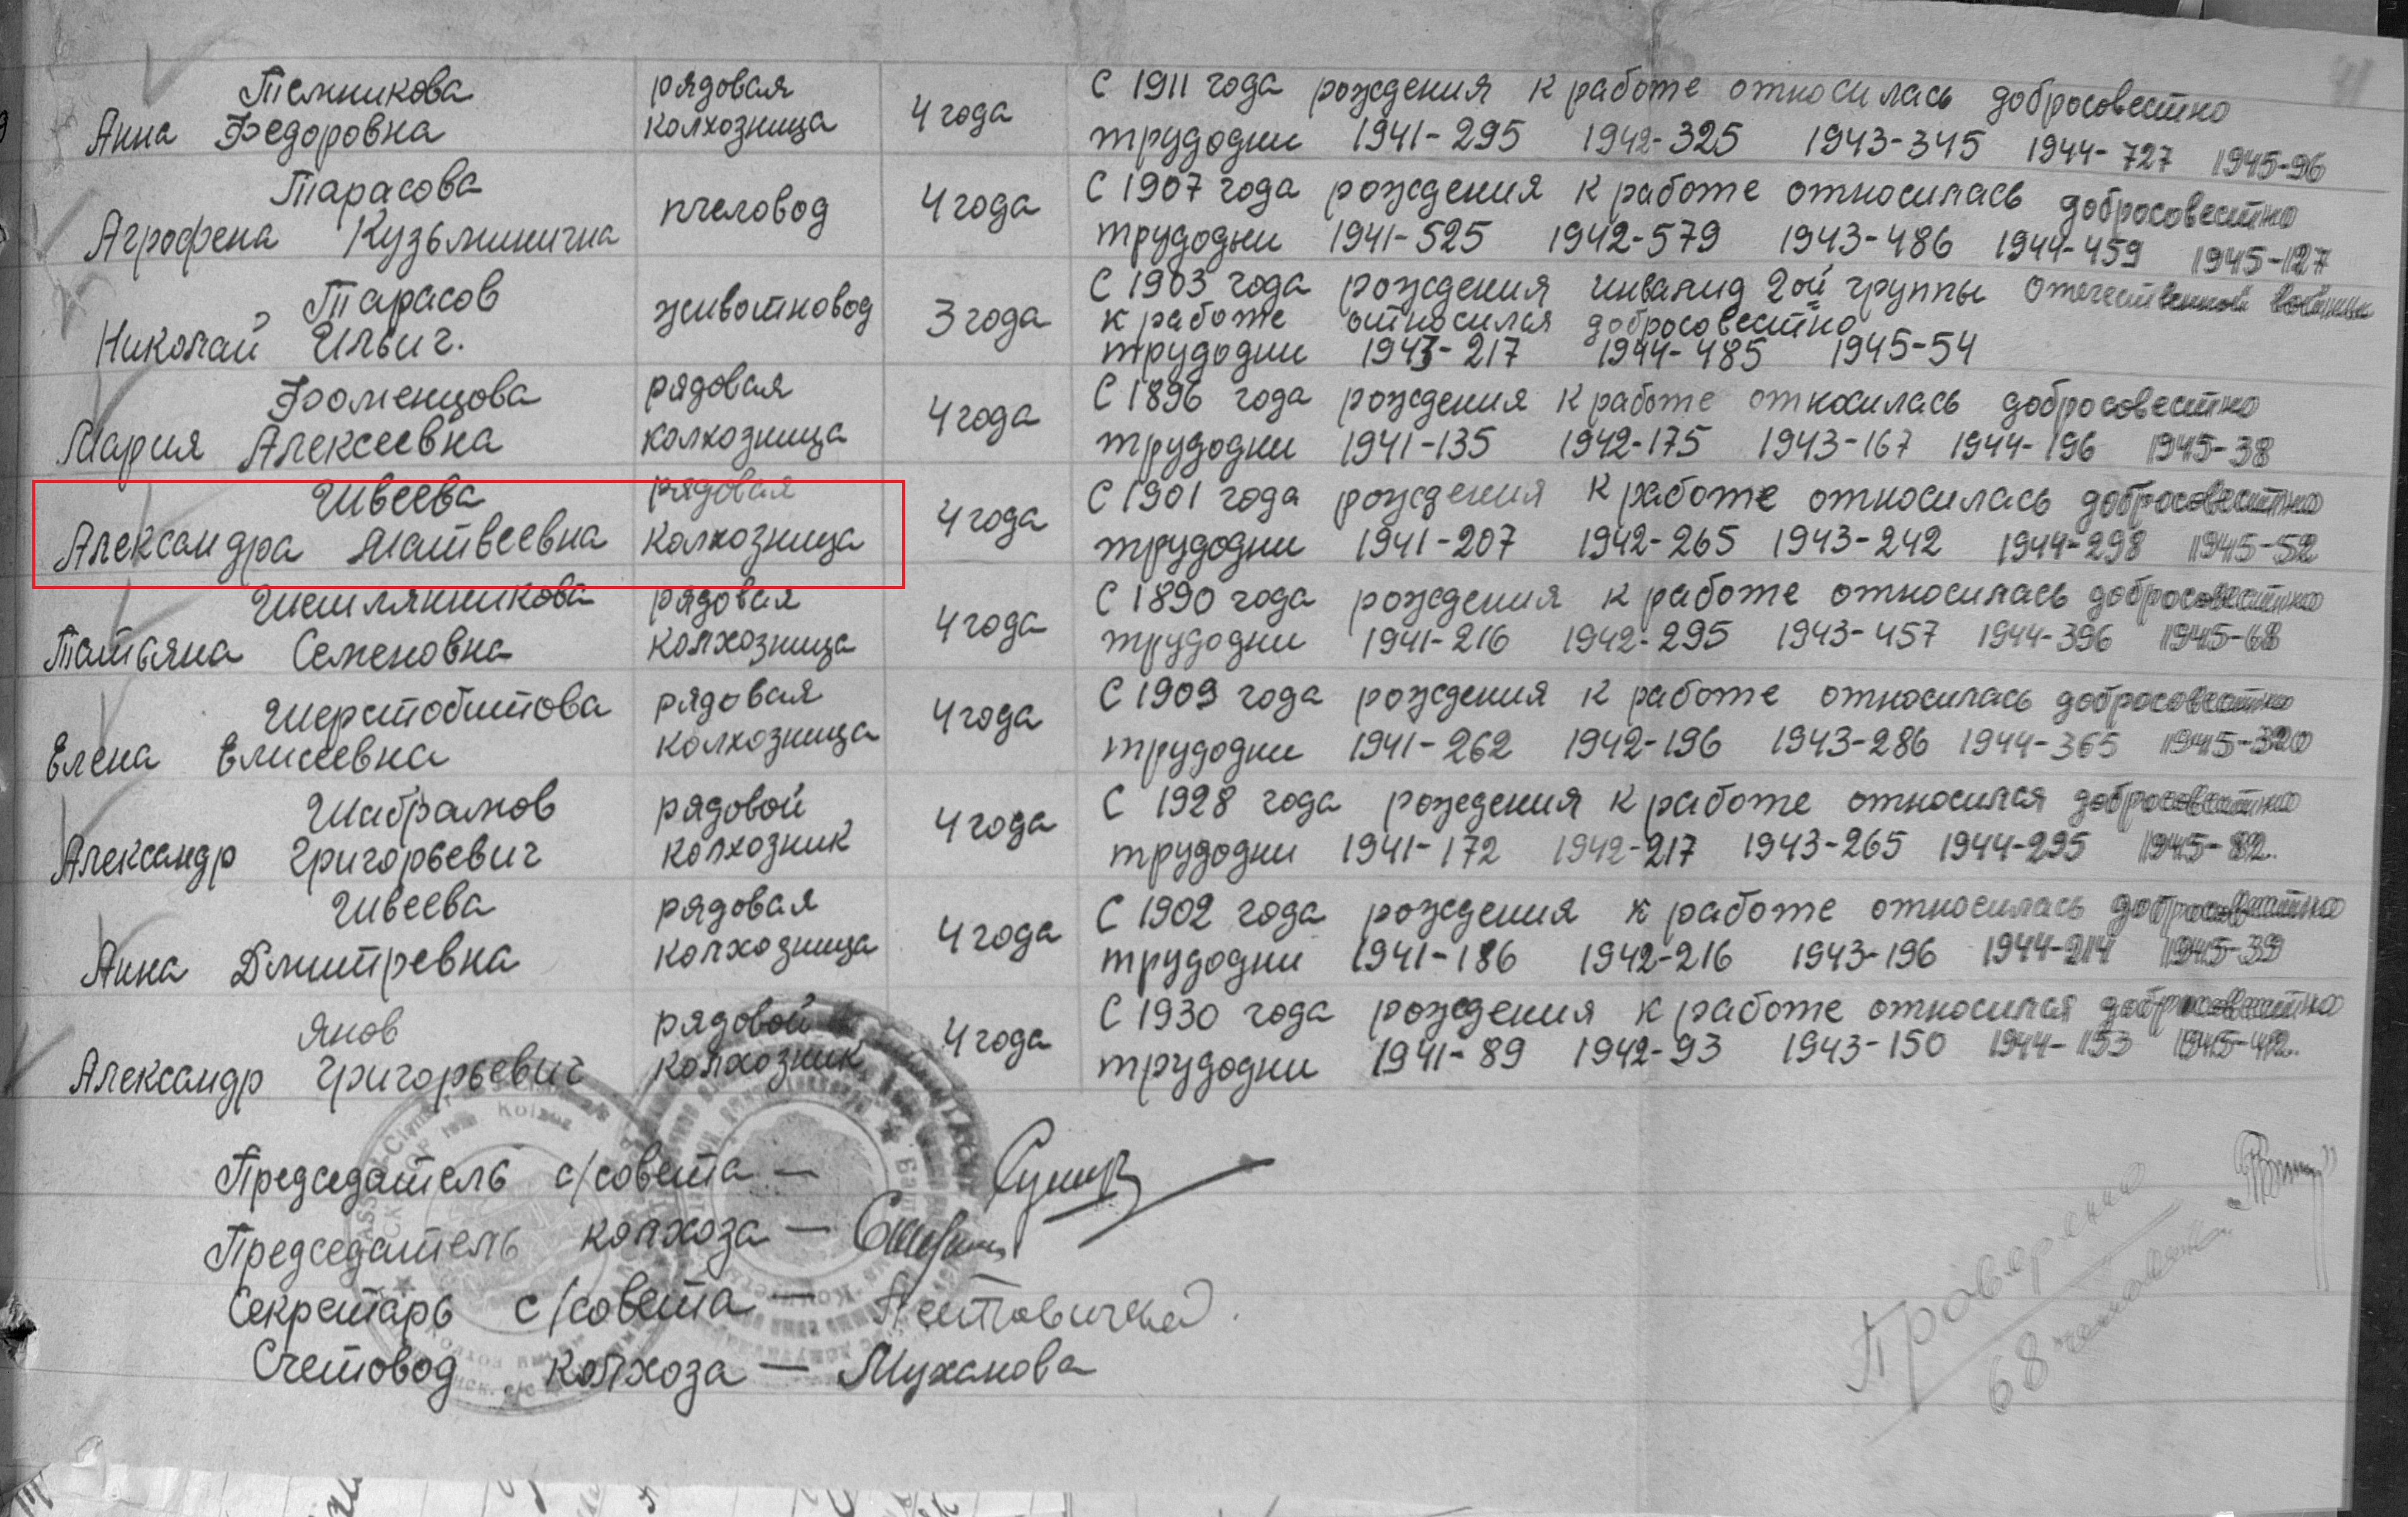 41
Темникова рядовая С 1911 года рождения к работе относилась добросовестно
Анна Федоровна колхозница 4 года трудодни 1941-295 1942-325 1943-345 1944-727 1945-96
Тарасова С 1907 года рождения к работе относилась добросовестно
Агрофена Кузьминична пчеловод 4 года трудодни 1941-525 1942-579 1943-486 1944-459 1945-127
Тарасов С 1903 года рождения инвалид 2ой группы Отечественной войны
Николай Ильич. животновод 3 года к работе относился добросовестно
трудодни 1943-217 1944-485 1945-54
Фоменцова рядовая С 1896 года рождения к работе относилась добросовестно
Мария Алексеевна колхозница 4 года трудодни 1941-135 1942-175 1943-167 1944-196 1945-38
Швеева рядовая С 1901 года рождения к работе относилась добросовестно
Александра Матвеевна колхозница 4 года трудодни 1941-207 1942-265 1943-242 1944-298 1945-52
рядовая С 1890 года рождения к работе относилась добросовестно
Татьяна Семеновна колхозница 4 года трудодни 1941-216 1942-295 1943-457 1944-396 1945-68
Шерстобитова рядовая С 1909 года рождения к работе относилась добросовестно
Елена Елисеевна колхозница 4 года трудодни 1941-262 1942-196 1943-286 1944-365 1945-320
Шабрамов рядовой С 1928 года рождения к работе относился добросовестно
Александр Григорьевич колхозник 4 года трудодни 1941-172 1942-217 1943-265 1944-295 1945-82.
Швеева рядовая С 1902 года рождения к работе относилась добросовестно
Анна Дмитревна колхозница 4 года трудодни 1941-186 1942-216 1943-196 1944-214 1945-39
Янов рядовой С 1930 года рождения к работе относился добросовестно
Александр Григорьевич колхозник 4 года трудодни 1941-89 1942-93 1943-150 1944-153 1945-42.
Председатель с/совета —
Председатель колхоза —
Секретарь с/совета —
Счетовод колхоза — Муханова
Проверено
68 человек